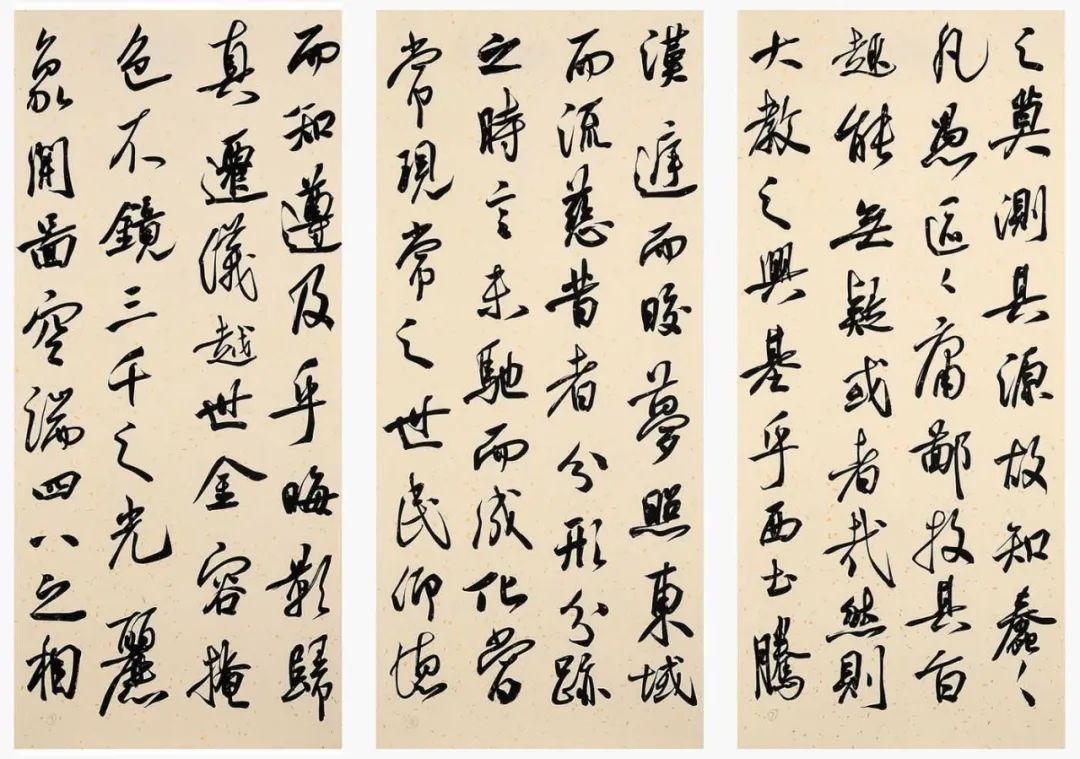 之莫測其源故知蠢〻
凡愚區〻庸鄙投其旨
趣能無疑或者哉然則
大教之興基乎西土騰
漢庭而皎夢照東域
而流慈昔者分形分跡
之時言未馳而成化當
常現常之世民仰德
而知遵及乎晦影歸
真遷儀越世金容掩
色不鏡三千之光麗
象開圖空端四八之相